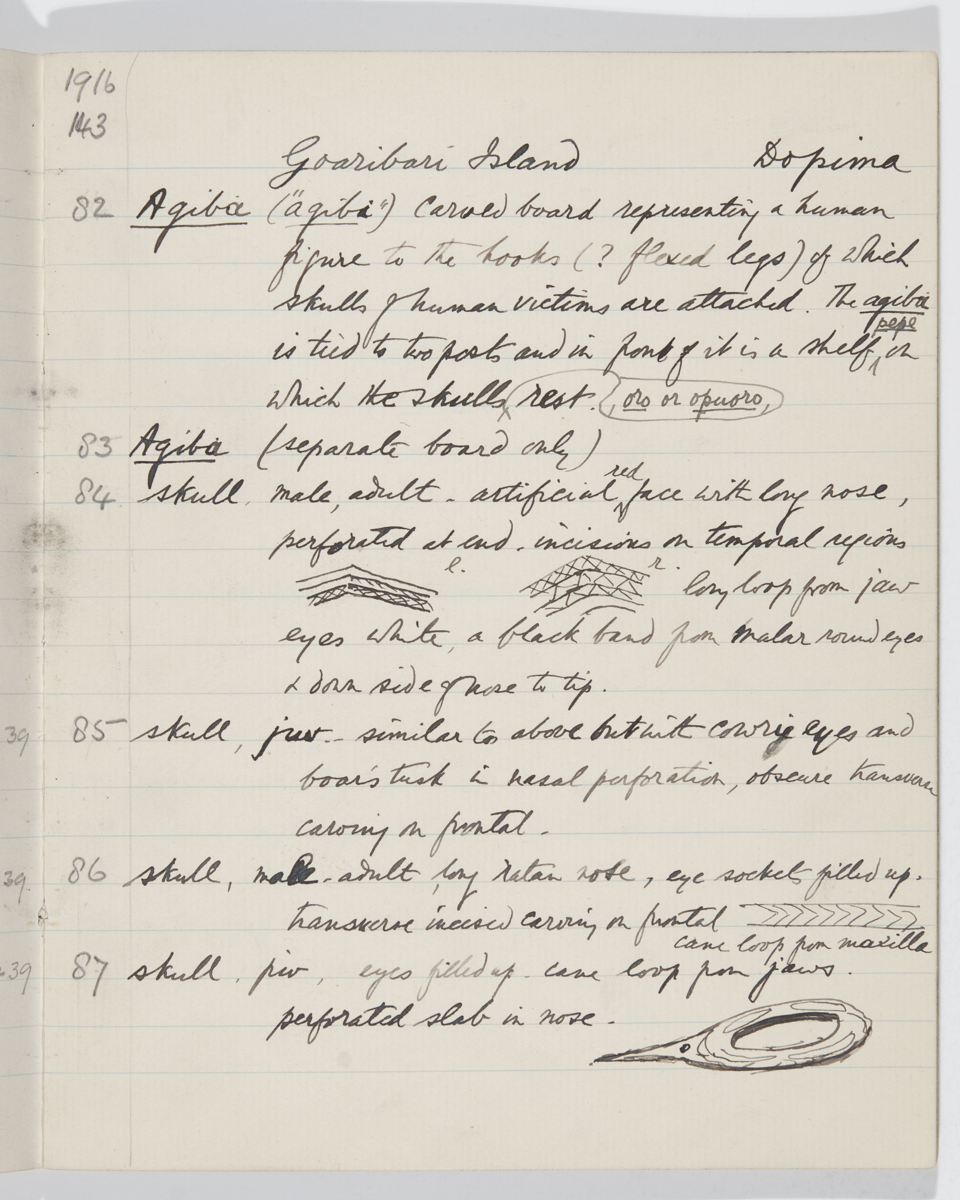 1916
143
Goaribari Island Dopima
82 Agiba ("agiba") Carved board representing a human
figure to the hooks (? flexed legs) of which
skulls of human victims are attached. The agiba
pepe
is tied to two posts and in front of it is a shelf, on
which the skulls rest. (oro or opuoro,)
83 Agiba (separate board only)
84 skull, male, adult - artificial red face with long nose,
perforated at end - incisions on temporal regions
l. r. long loop from jaw
eyes white, a black band from malar round eyes
& down side of nose to tip.
39 85 skull, juv. - similar to above but with cowrie eyes and
boar's tusk in nasal perforation, obscure transverse
carving on frontal -
39. 86 skull, male - adult, long ratan nose, eye sockets filled up.
transverse incised carving on frontal
cane loop from maxilla
39 87 skull, juv, eyes filled up - cane loop from jaws.
perforated slab in nose -